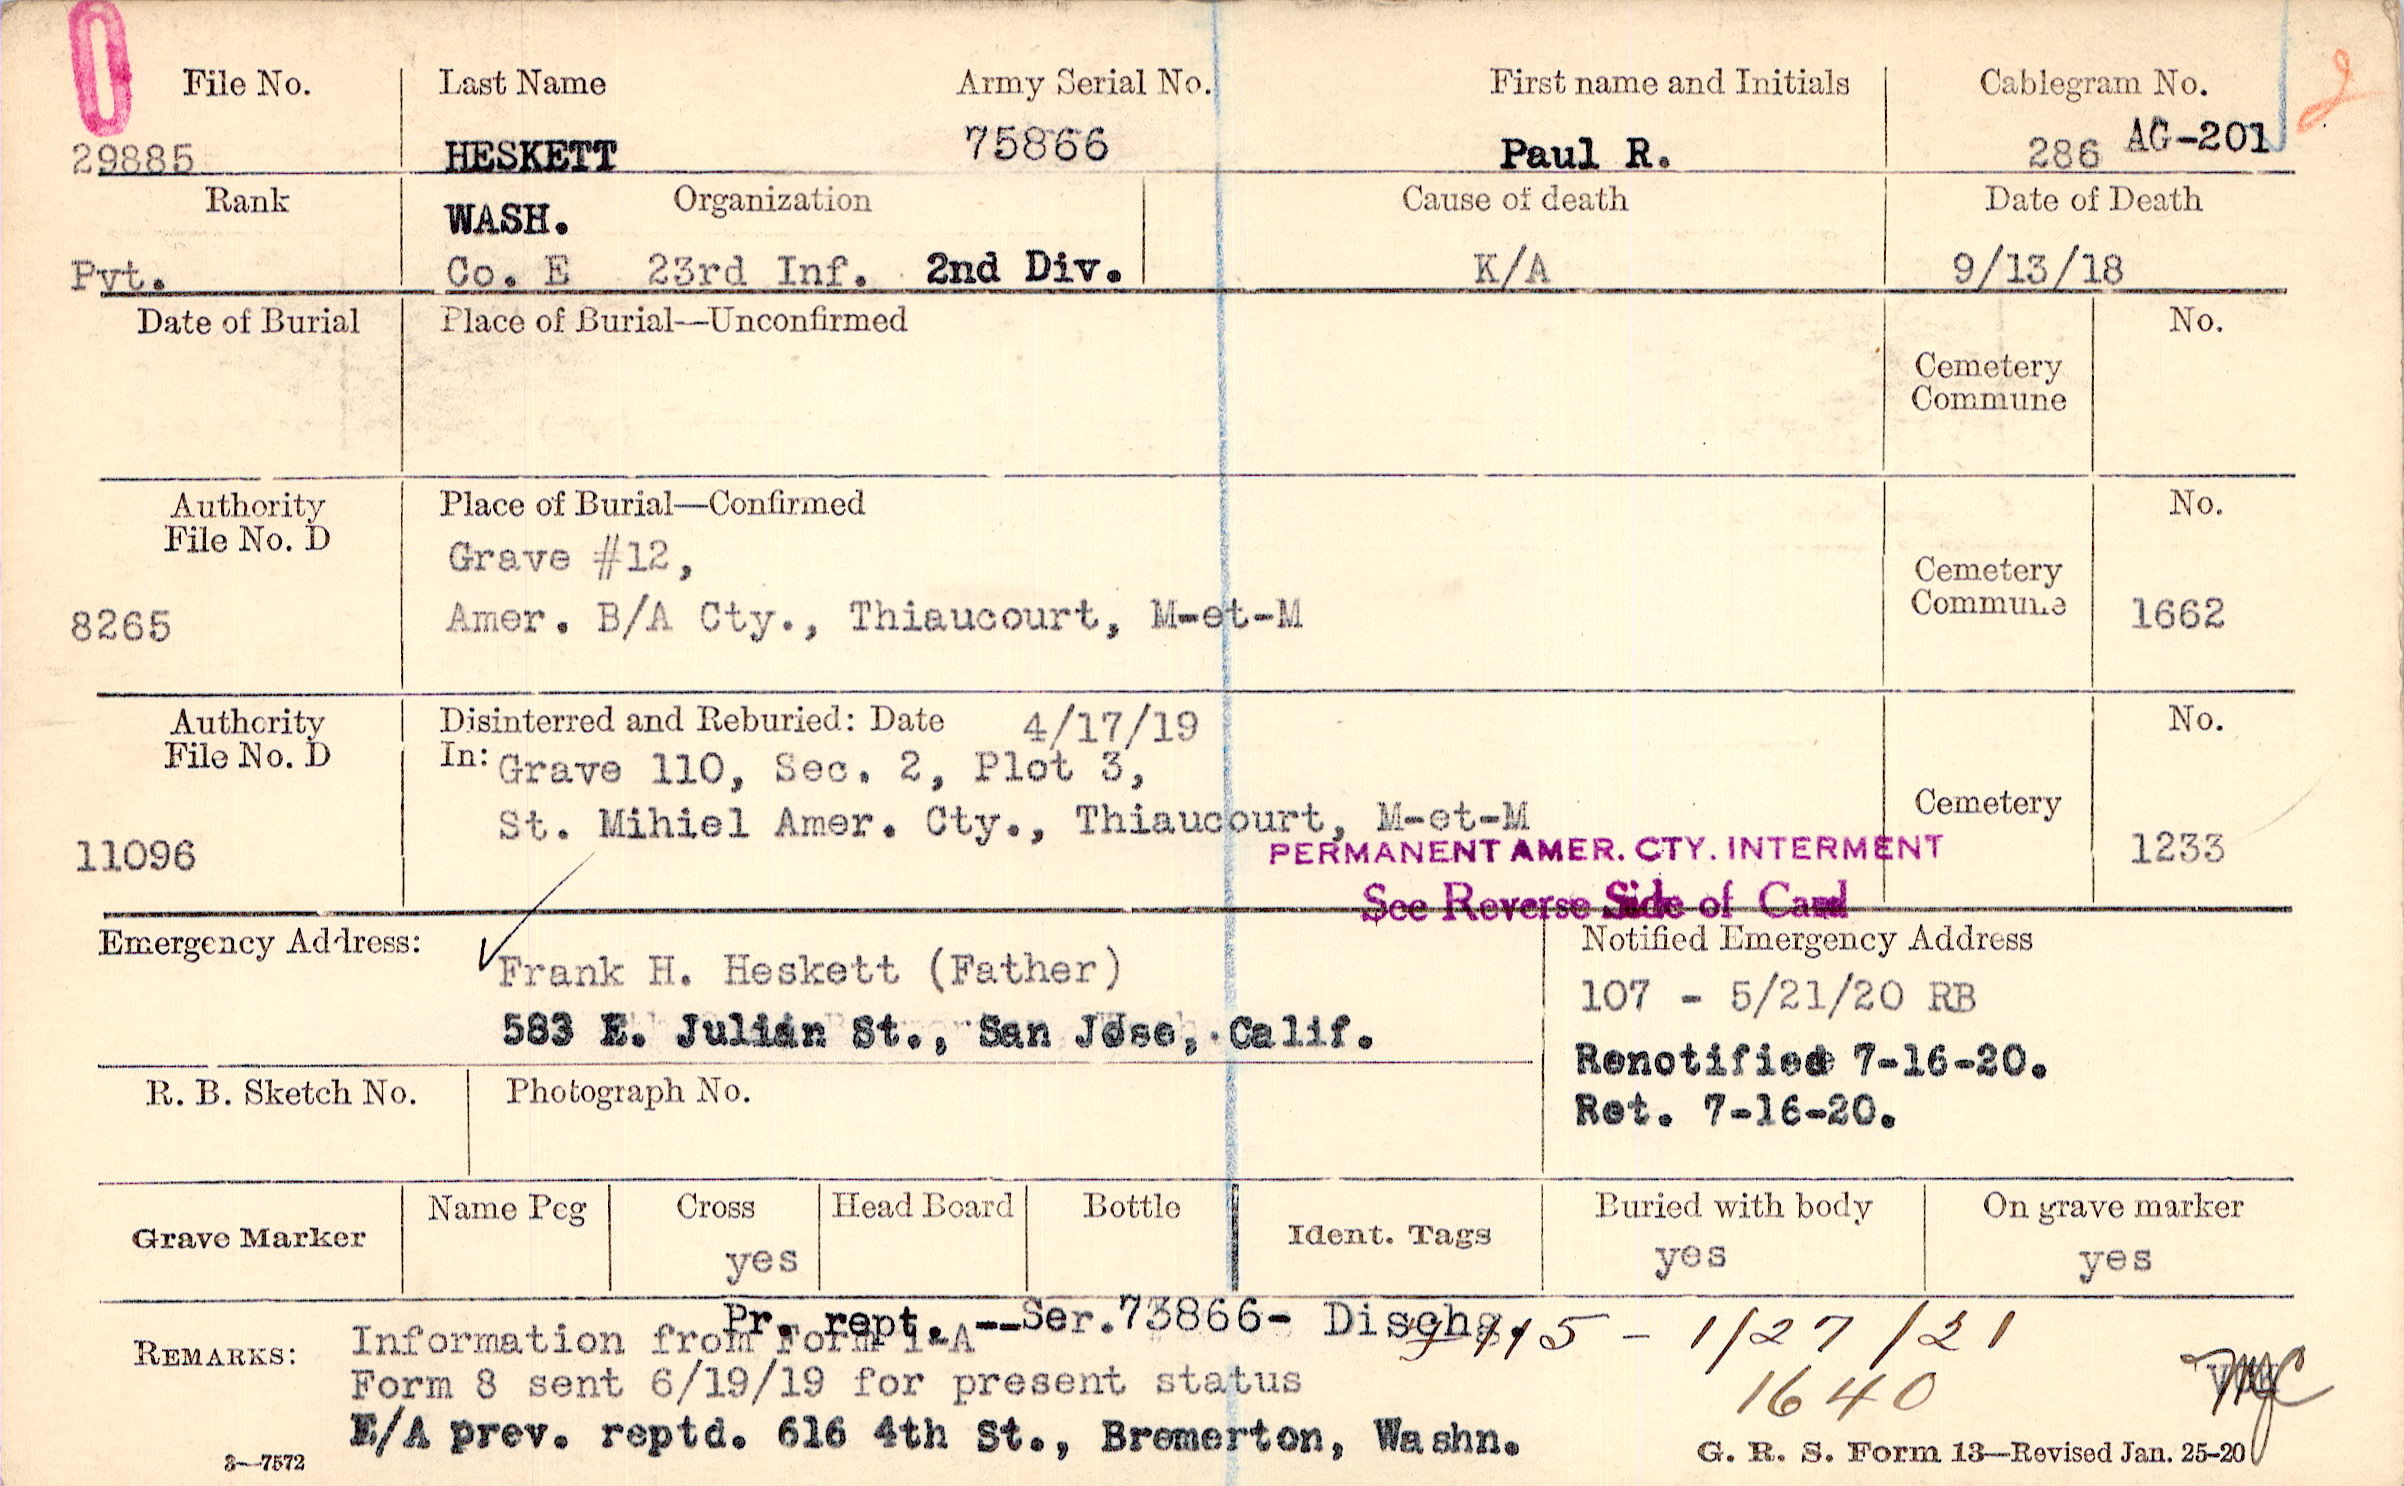 File No. Last Name Army Serial No. First name and Initials Cablegram No.
29885 HESKETT 75866 Paul R. 286 AG-201
2
Rank Organization Cause of death Date of Death
WASH.
Pvt. Co. E 23rd Inf. 2nd Div. K/A 9/13/18
Date of Burial Place of Burial—Unconfirmed No.
Cemetery
Commune
Authority Place of Burial—Confirmed No.
File No. D
Grave #12,
Cemetery
8265 Amer. B/A Cty., Thiaucourt, M-et-M Commune 1662
Authority Disinterred and Reburied: Date 4/17/19 No.
File No. D In: Grave 110, Sec. 2, Plot 3,
St. Mihiel Amer. Cty., Thiaucourt, M-et-M Cemetery
11096 PERMANENT AMER. CTY. INTERMENT 1233
See Reverse Side of Card
Emergency Address: Notified Emergency Address
Frank H. Heskett (Father) 107 - 5/21/20 RB
583 E. Julian St., San Jose, Calif.
Renotified 7-16-20.
R. B. Sketch No. Photograph No.
Ret. 7-16-20.
Grave Marker Name Peg Cross Head Board Bottle Ident. Tags Buried with body On grave marker
yes yes yes
Pr. rept. --Ser.73866- Dischg. 5 - 1/27/21
REMARKS: Information from Form 1-A
Form 8 sent 6/19/19 for present status 1640
E/A prev. reptd. 616 4th St., Bremerton, Washn.
3—7572 G. R. S. Form 13—Revised Jan. 25-20